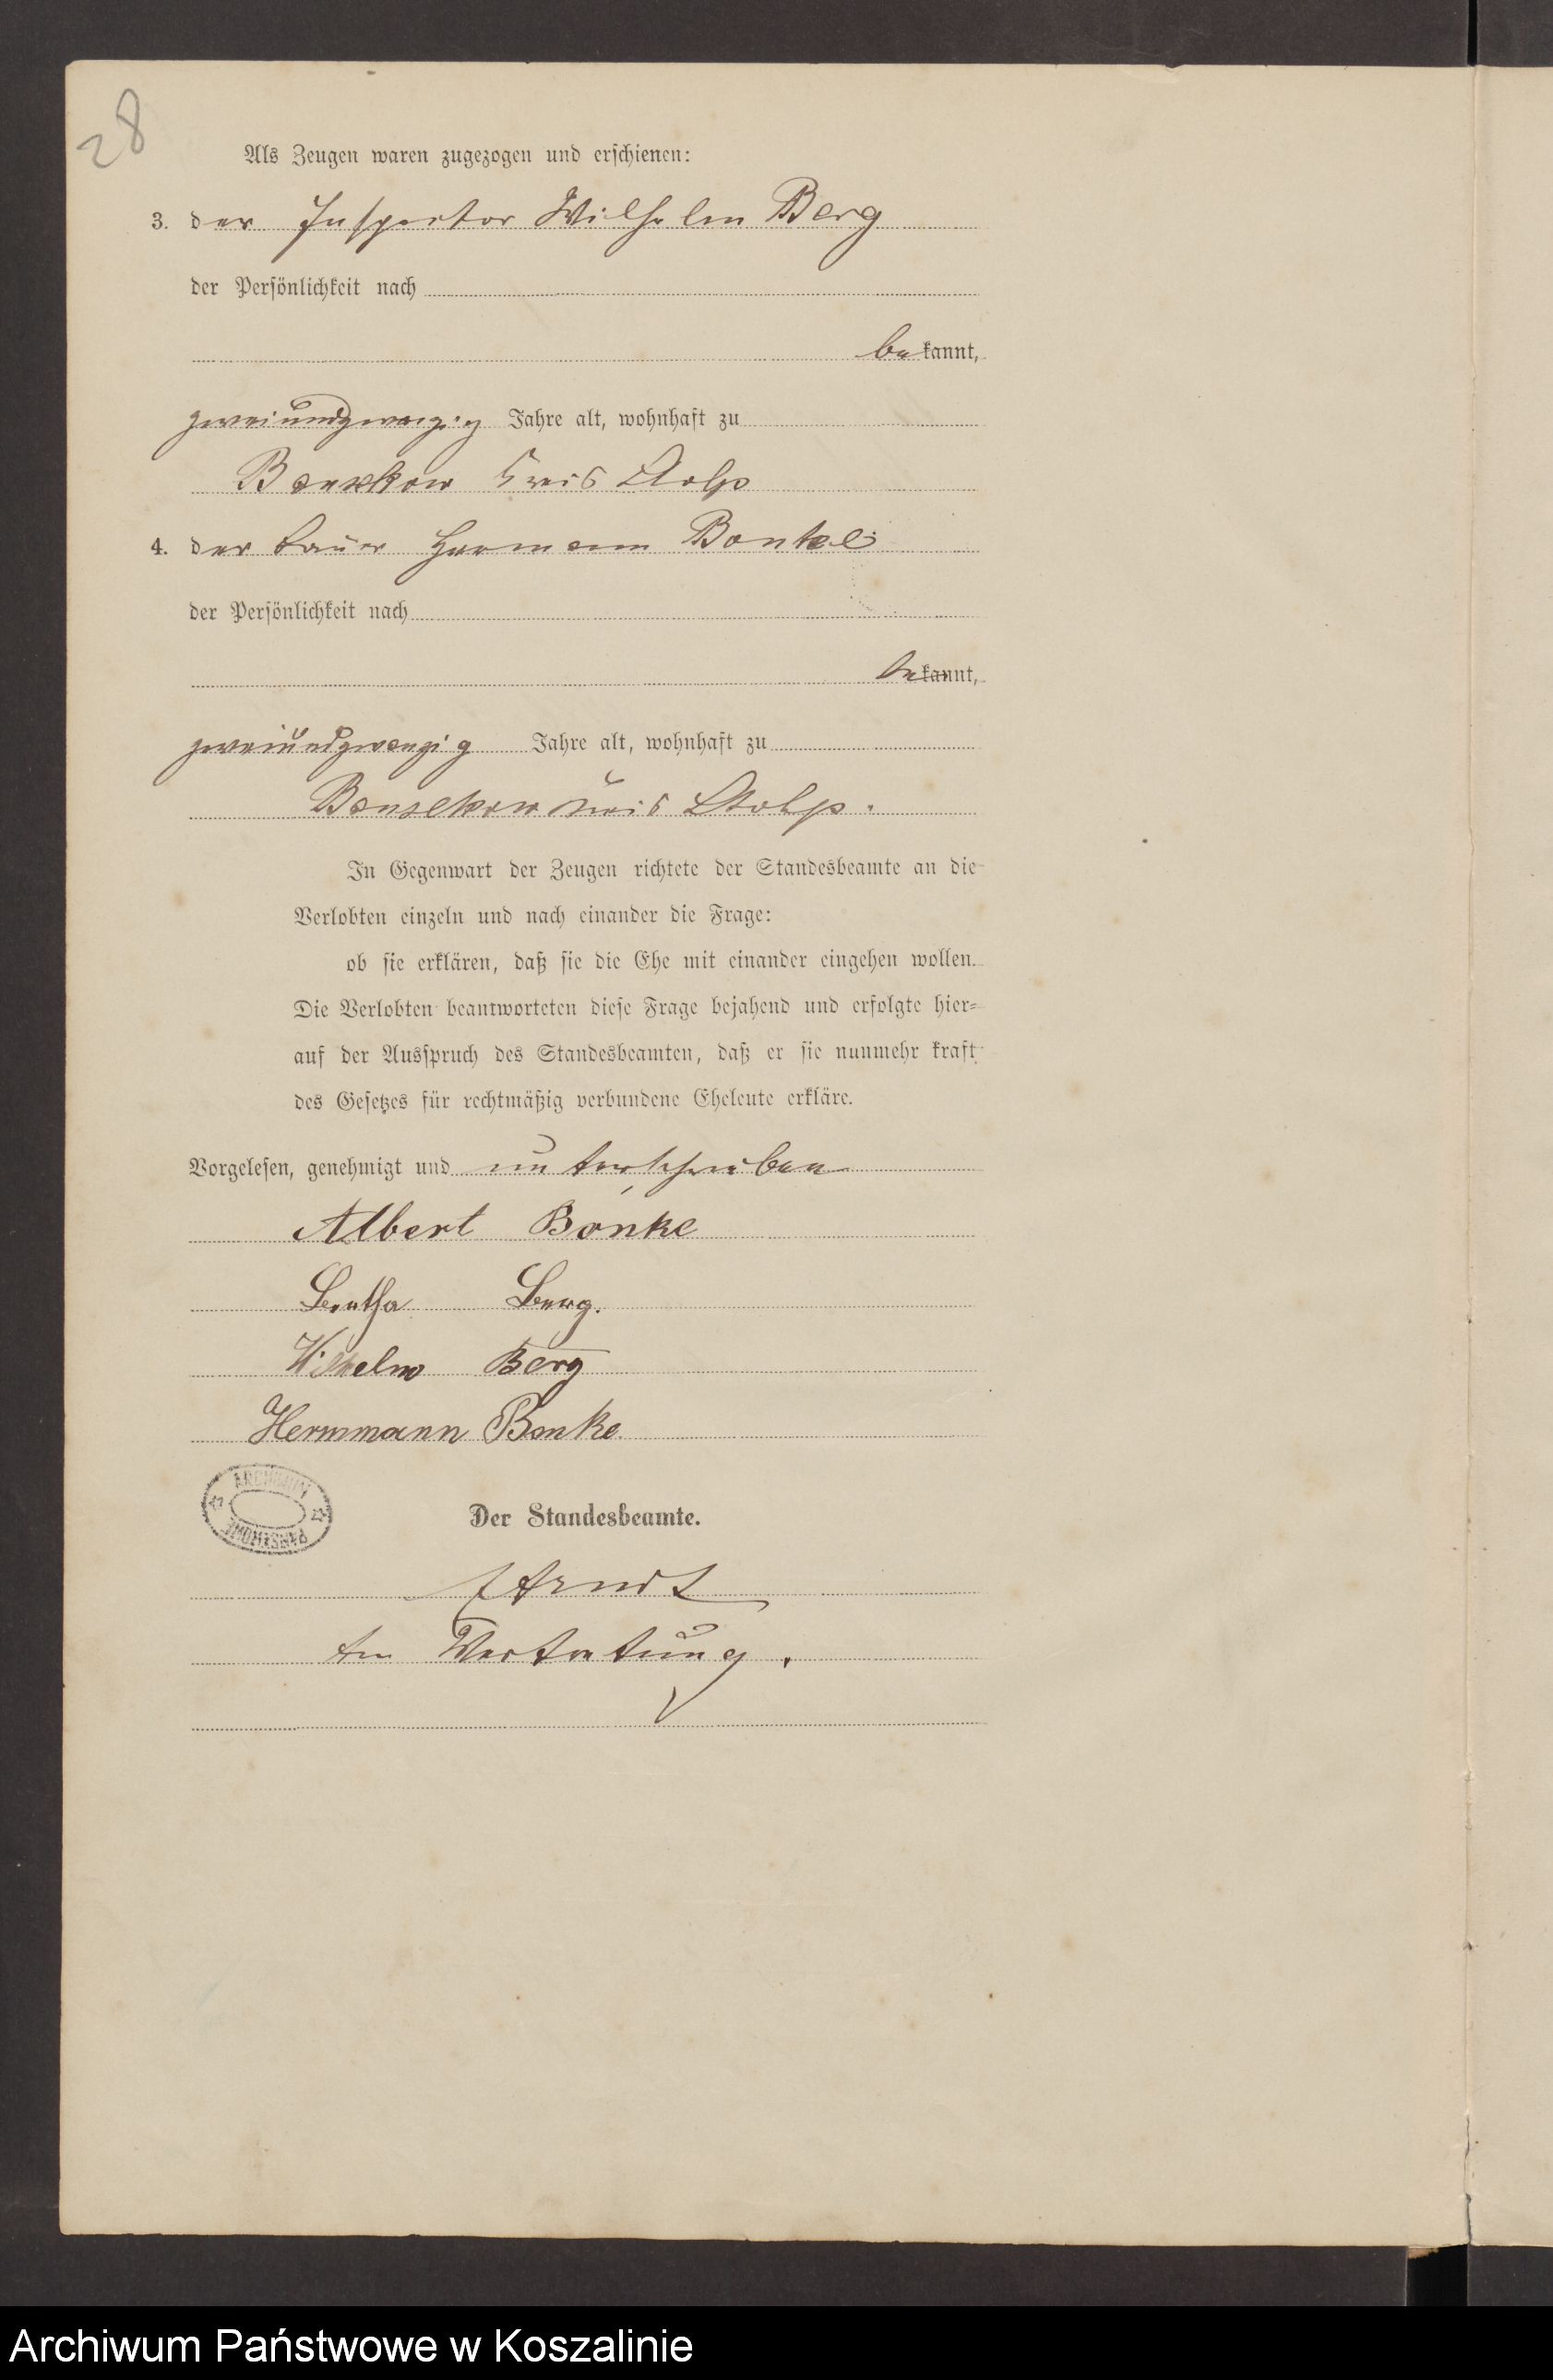 28
Als Zeugen waren zugezogen und erschienen:
3. der Inspector Wilhelm Berg
der Persönlichkeit nach
bekannt,
zweiundzwanzig Jahre alt, wohnhaft zu
Bansekow Kreis Stolp
4. der Bauer Hermann Bonke
der Persönlichkeit nach
bekannt,
zweiundzwanzig Jahre alt, wohnhaft zu
Bansekow Kreis Stolp.
In Gegenwart der Zeugen richtete der Standesbeamte an die
Verlobten einzeln und nach einander die Frage:
ob sie erklären, daß sie die Ehe mit einander eingehen wollen.
Die Verlobten beantworteten diese Frage bejahend und erfolgte hier-
auf der Ausspruch des Standesbeamten, daß er sie nunmehr kraft
des Gesetzes für rechtmäßig verbundene Eheleute erkläre.
Vorgelesen, genehmigt und unterschrieben
Albert Bonke
Bertha Berg.
Wilhelm Berg
Hermmann Bonke
ARCHIWUM PAŃSTWOWE
Der Standesbeamte.
Arndt
In Vertretung.
Archiwum Państwowe w Koszalinie